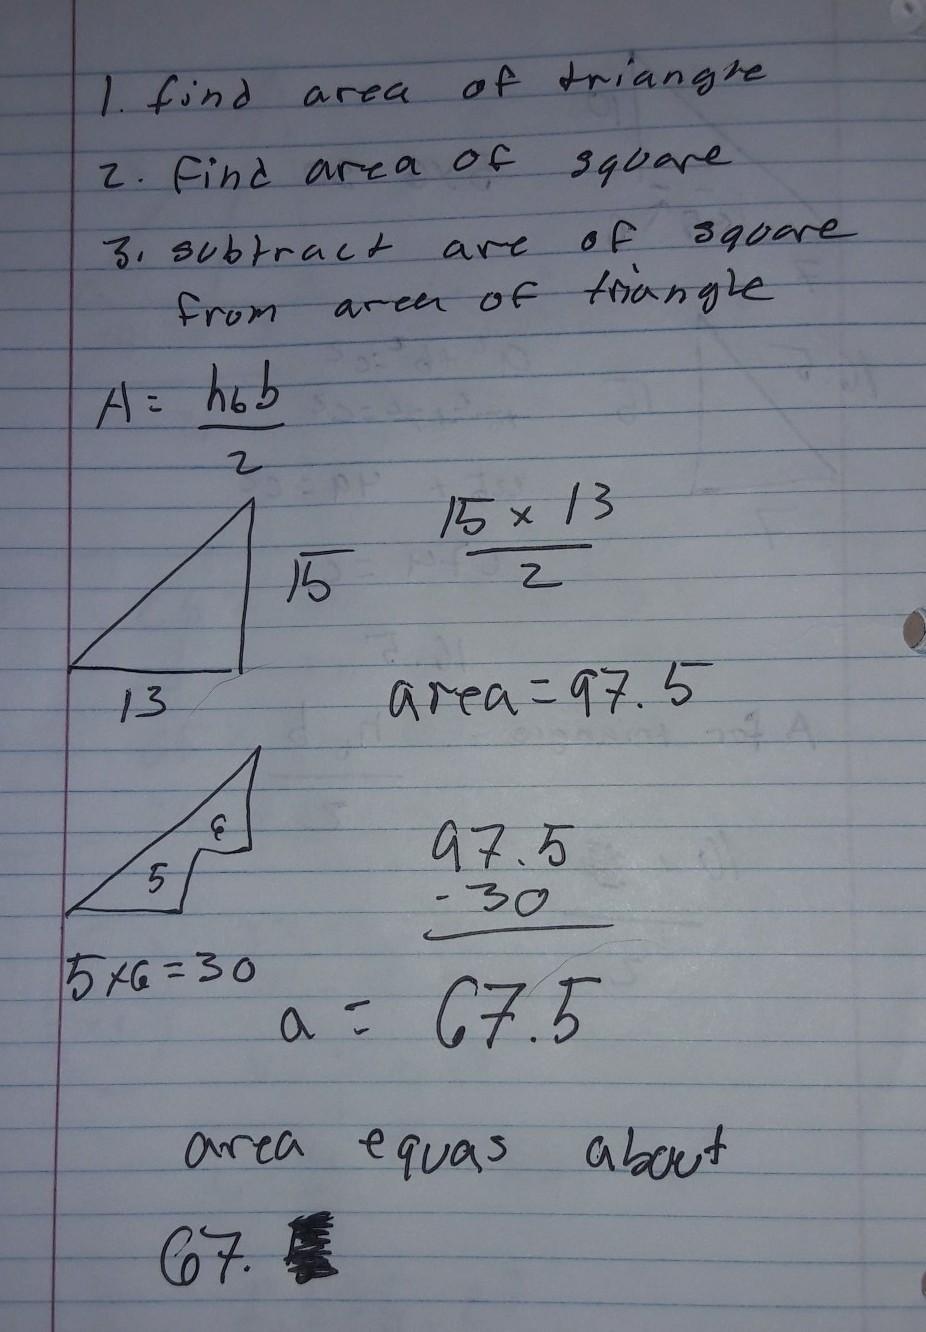 1. find area of triangle
2. find area of square
3. subtract are of square
from area of triangle
A = h₆b
2
15 x 13
2
15
13
area = 97.5
6
5
97.5
- 30
5 x 6 = 30
a = 67.5
area equas about
67.